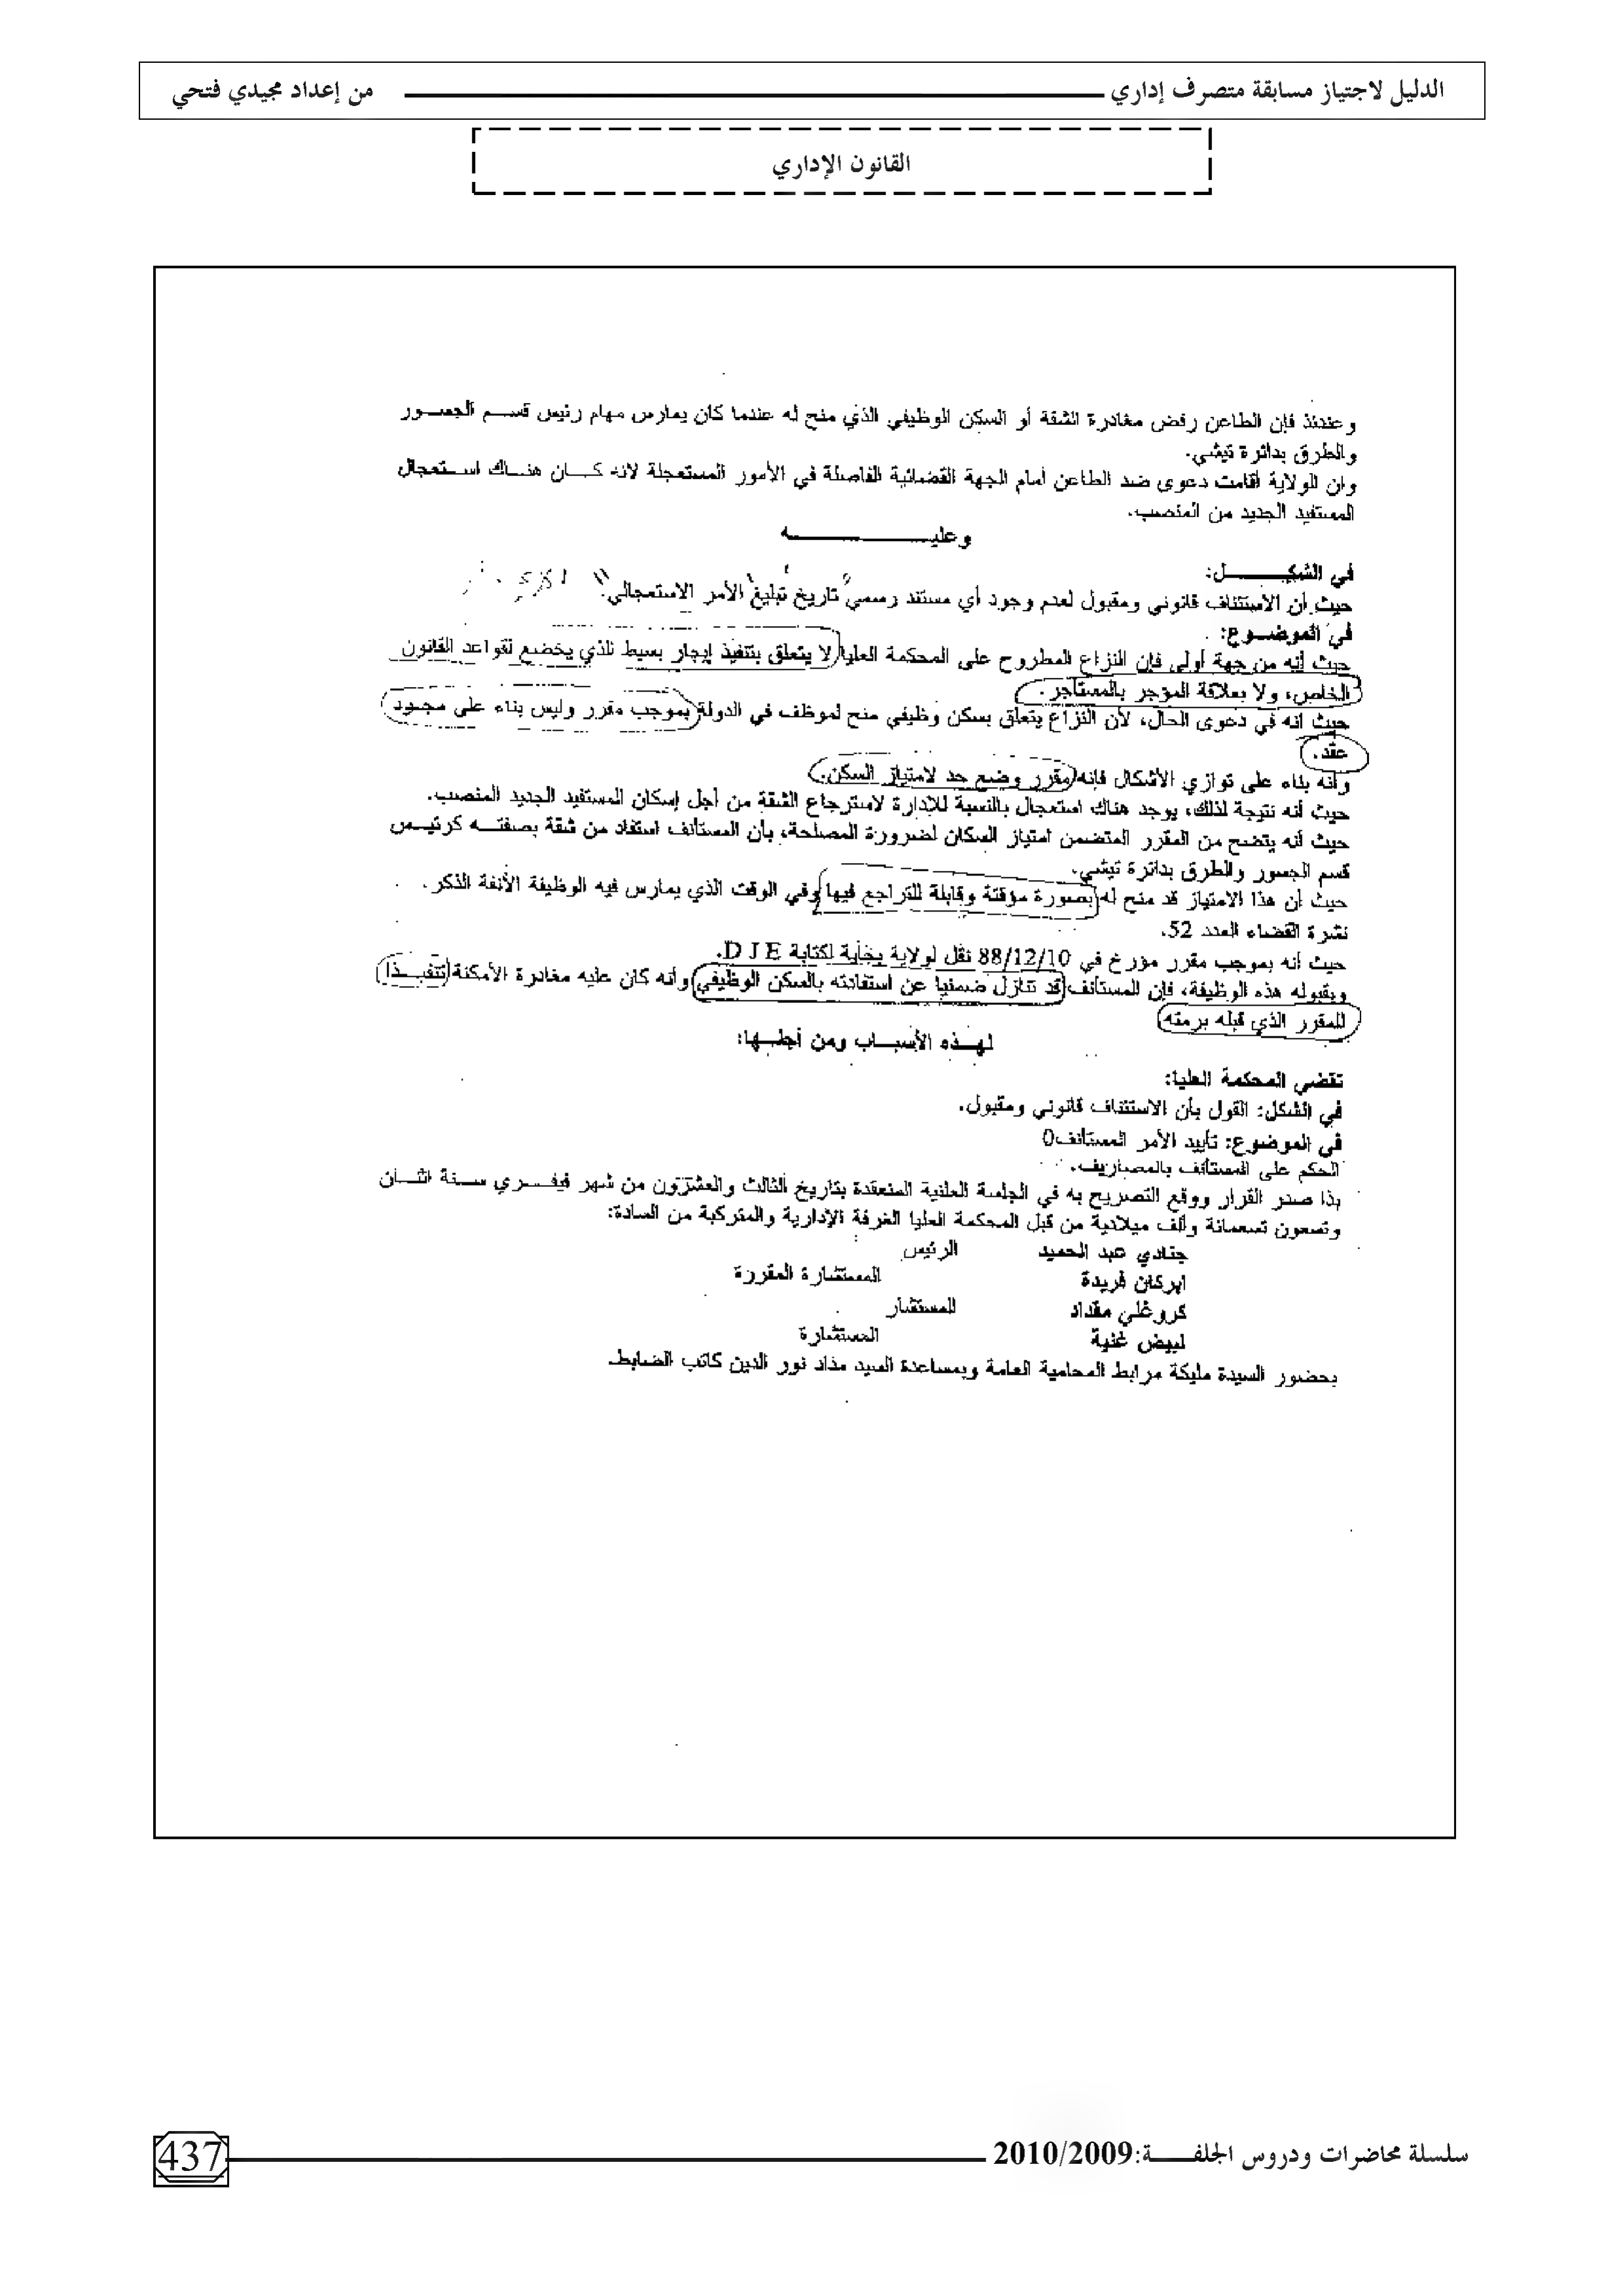 الدليل لاجتياز مسابقة متصرف إداري من إعداد مجيدي فتحي
القانون الإداري
وعندئذ فإن الطاعن رفض مغادرة الشقة أو السكن الوظيفي الذي منح له عندما كان يمارس مهام رئيس قسم الجسور
والطرق بدائرة تيشي.
وان الولاية أقامت دعوى ضد الطاعن أمام الجهة القضائية الفاصلة في الأمور المستعجلة لانه كان هناك استعجال
المستفيد الجديد من المنصب.
وعليه
في الشكل:
حيث أن الاستئناف قانوني ومقبول لعدم وجود أي مستند رسمي تاريخ تبليغ الأمر الاستعجالي.
في الموضوع:
حيث إنه من جهة أولى فإن النزاع المطروح على المحكمة العليا لا يتعلق بتنفيذ إيجار بسيط الذي يخضع لقواعد القانون
الخاص، ولا بعلاقة المؤجر بالمستأجر.
حيث انه في دعوى الحال، لأن النزاع يتعلق بسكن وظيفي منح لموظف في الدولة بموجب مقرر وليس بناء على مجرد
عقد.
وأنه بناء على توازي الأشكال فإنه مقرر وضع حد لامتياز السكن.
حيث أنه نتيجة لذلك، يوجد هناك استعجال بالنسبة للإدارة لاسترجاع الشقة من أجل إسكان المستفيد الجديد المنصب.
حيث أنه يتضح من المقرر المتضمن امتياز السكان لضرورة المصلحة، بأن المستأنف استفاد من شقة بصفته كرئيس
قسم الجسور والطرق بدائرة تيشي.
حيث أن هذا الامتياز قد منح له بصورة مؤقتة وقابلة للتراجع فيها وفي الوقت الذي يمارس فيه الوظيفة الأنفة الذكر.
نشرة القضاء العدد 52.
حيث أنه بموجب مقرر مؤرخ في 88/12/10 نقل لولاية بجاية لكتابة D J E.
وبقبوله هذه الوظيفة، فإن المستأنف قد تنازل ضمنيا عن استفادته بالسكن الوظيفي وأنه كان عليه مغادرة الأمكنة تنفيذا
للمقرر الذي قبله برمته
لهذه الأسباب ومن أجلها:
تقضي المحكمة العليا:
في الشكل: القول بأن الاستئناف قانوني ومقبول.
في الموضوع: تأييد الأمر المستأنف0
الحكم على المستأنف بالمصاريف.
بذا صدر القرار ووقع التصريح به في الجلسة العلنية المنعقدة بتاريخ الثالث والعشرون من شهر فيفري سنة اثنان
وتسعون تسعمائة وألف ميلادية من قبل المحكمة العليا الغرفة الإدارية والمتركبة من السادة:
جنادي عبد الحميد الرئيس
ابركان فريدة المستشارة المقررة
كروغلي مقداد المستشار
لبيض غنية المستشارة
بحضور السيدة مليكة مرابط المحامية العامة وبمساعدة السيد مذاد نور الدين كاتب الضابط.
سلسلة محاضرات ودروس الجلفة:2010/2009
437